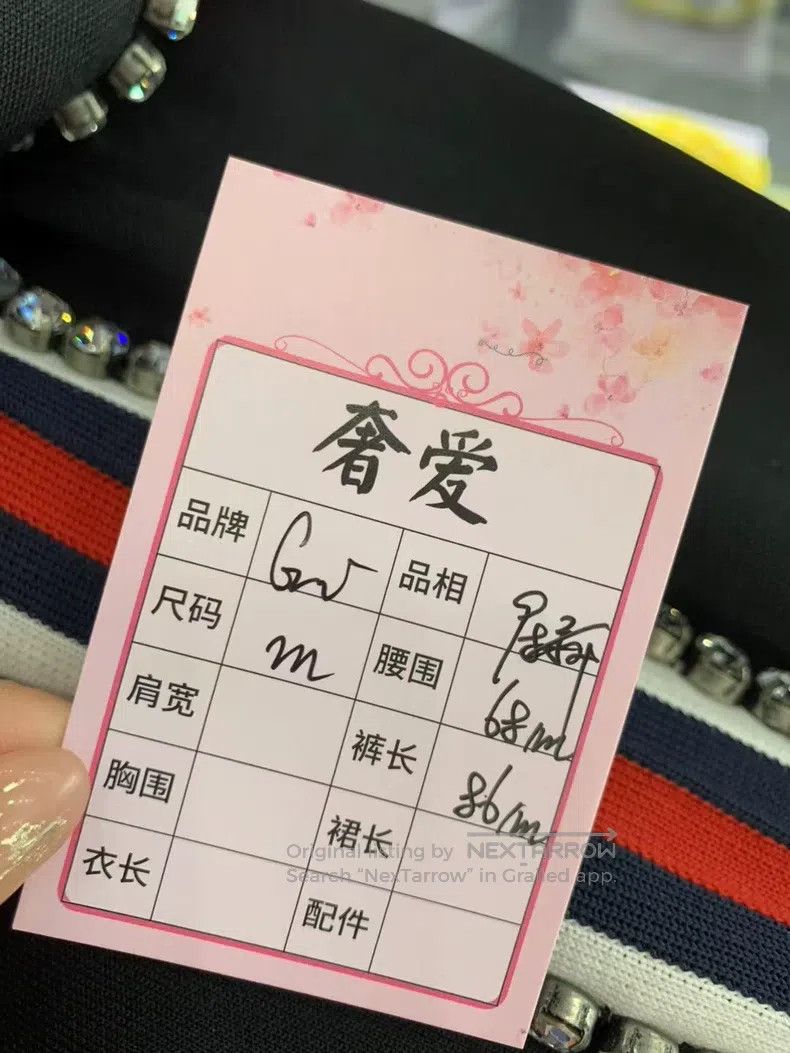 奢爱
品牌 品相
尺码 m 腰围 68cm
肩宽 裤长 86cm
胸围 裙长
衣长 配件
Original listing by NEXTARROW
Search "NexTarrow" in Grailed app.